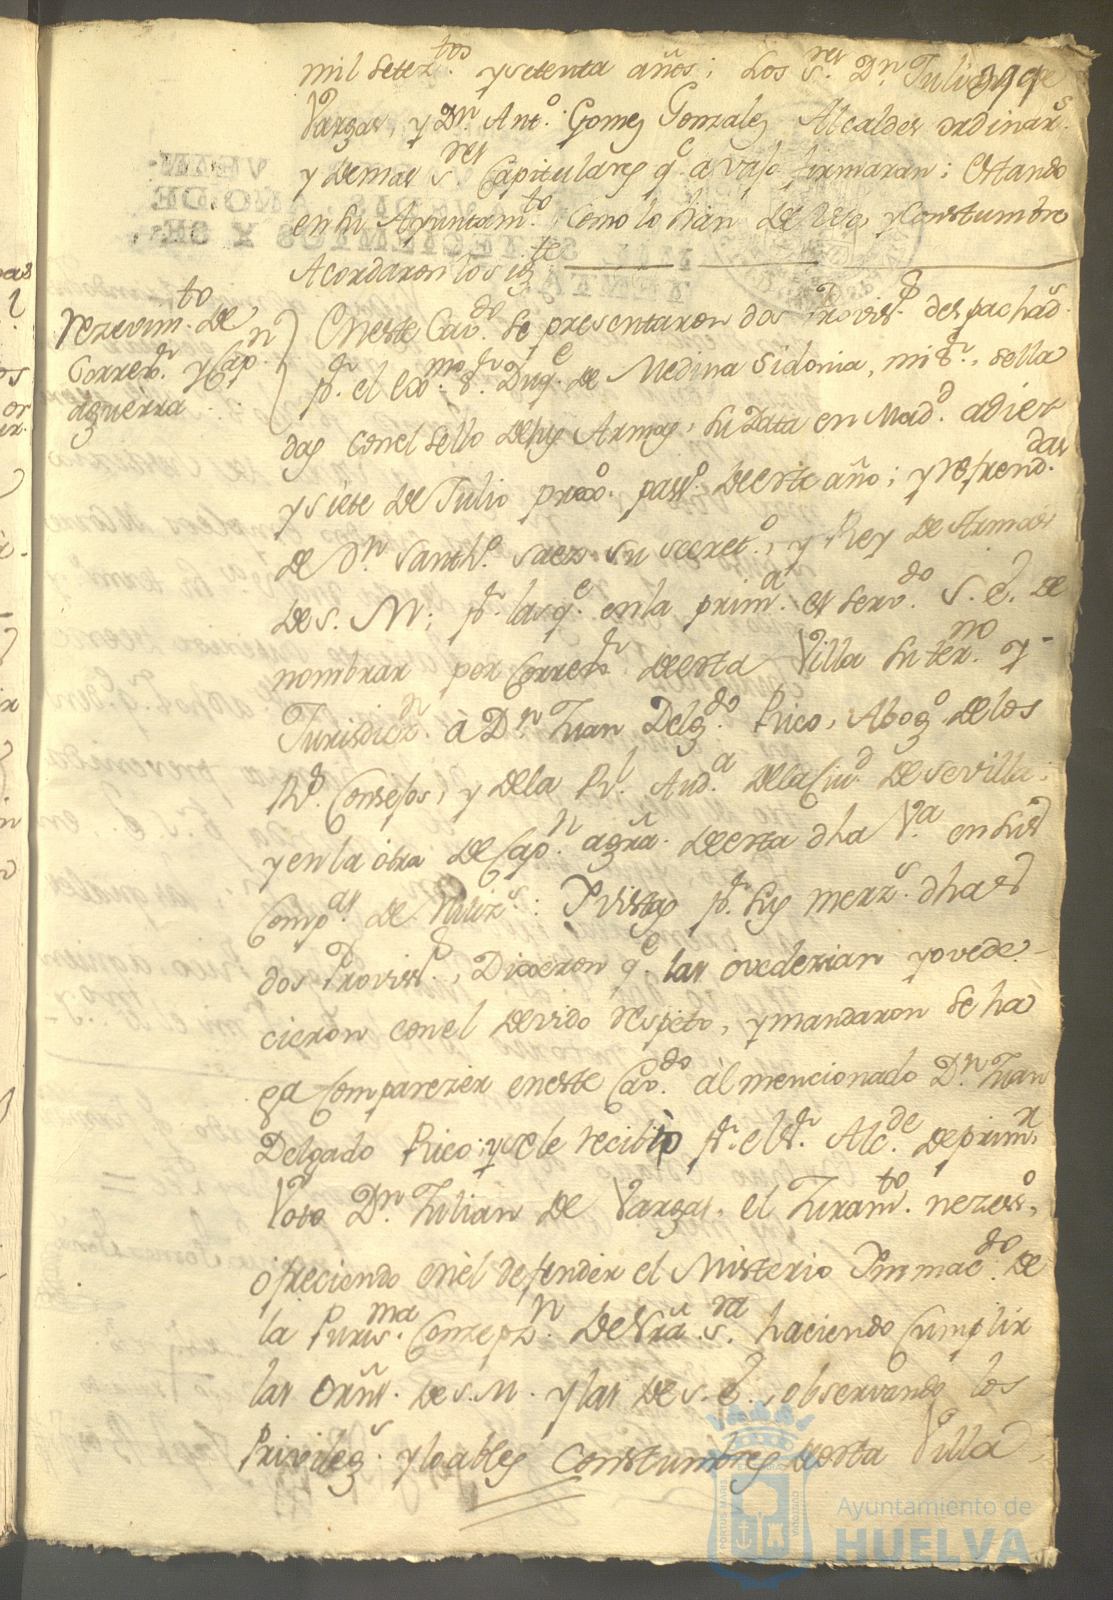 mil setez.tos y setenta años; Los S.res D.n Julian de
Vargas, y D.n Ant.o Gomez Gonzalez Alcaldes ordinar.s
y demas S.res Capitulares q.e avajo firmaran; Estando
en su Ayuntam.to, como lo han de uso, y Constumbre
Acordaron lo sig.te
Rezevim.to de
Corred.r y Cap.n
aguerra
En este Cav.do se presentaron dos Provis.s despachad.s
p.r el Ex.mo S.r Duq.e de Medina Sidonia, mi S.r, sella
das con el sello de sus Armas, su Data en Mad.d a diez
y siete de Julio proxo. pas.o de este año; y refrend.das
de D.n Santh.o Saez su secret.o, y Rey de Armas
de S. M; p.r las q.e en la prim.a es serv.do S. E. de
nombrar por Correx.r de esta Villa su ter.no y
Jurisdicz.n à D.n Juan Delg.do Rico, Abog.o de los
R.s Consejos, y de la R.l Aud.a de la Ciu.d de Sevilla;
y en la otra de Cap.n agura. de esta dha V.a en sus
Comp.as de Miliz.s: Y vistas p.r sus merz.s dhas
dos Provis.s, Dixeron q.e las ovedezian y ovede-
cieron con el devido respeto, y mandaron se ha
ga Comparezer en este Cav.do al mencionado D.n Juan
Delgado Rico; y se le recibio p.r el S.r Alc.de de prim.r
Voto D.n Julian de Vargas, el Juram.to nezes.o,
ofreciendo en èl defender el Misterio Ynmac.do de
la Puris.ma Conzepz.n de Nra S.ra haciendo Cumplir
las Orns. de S. M. y las de S. E., observando los
Privileg.s y loables Constumbres de esta Villa
Ayuntamiento de
HUELVA